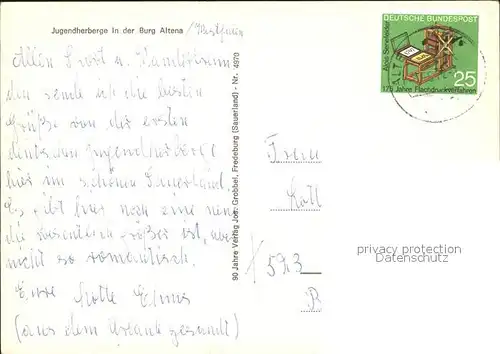 Jugendherberge in der Burg Altena / Westfalen
Allen Frost u. Wanderfreun
den sende ich die besten
Grüße von der ersten
deutschen Jugendherberge
hier im schönen Sauerland.
Es gibt hier noch eine neue
die wesentlich größer ist, aber
nicht so romantisch.
Eure Lotte
(aus dem Urlaub gesandt)
90 Jahre Verlag Jos. Grobbel, Fredeburg (Sauerland) - Nr. 4970
DEUTSCHE BUNDESPOST
Alois Senefelder
25
175 Jahre Flachdruckverfahren
Frau
593
privacy protection
Datenschutz